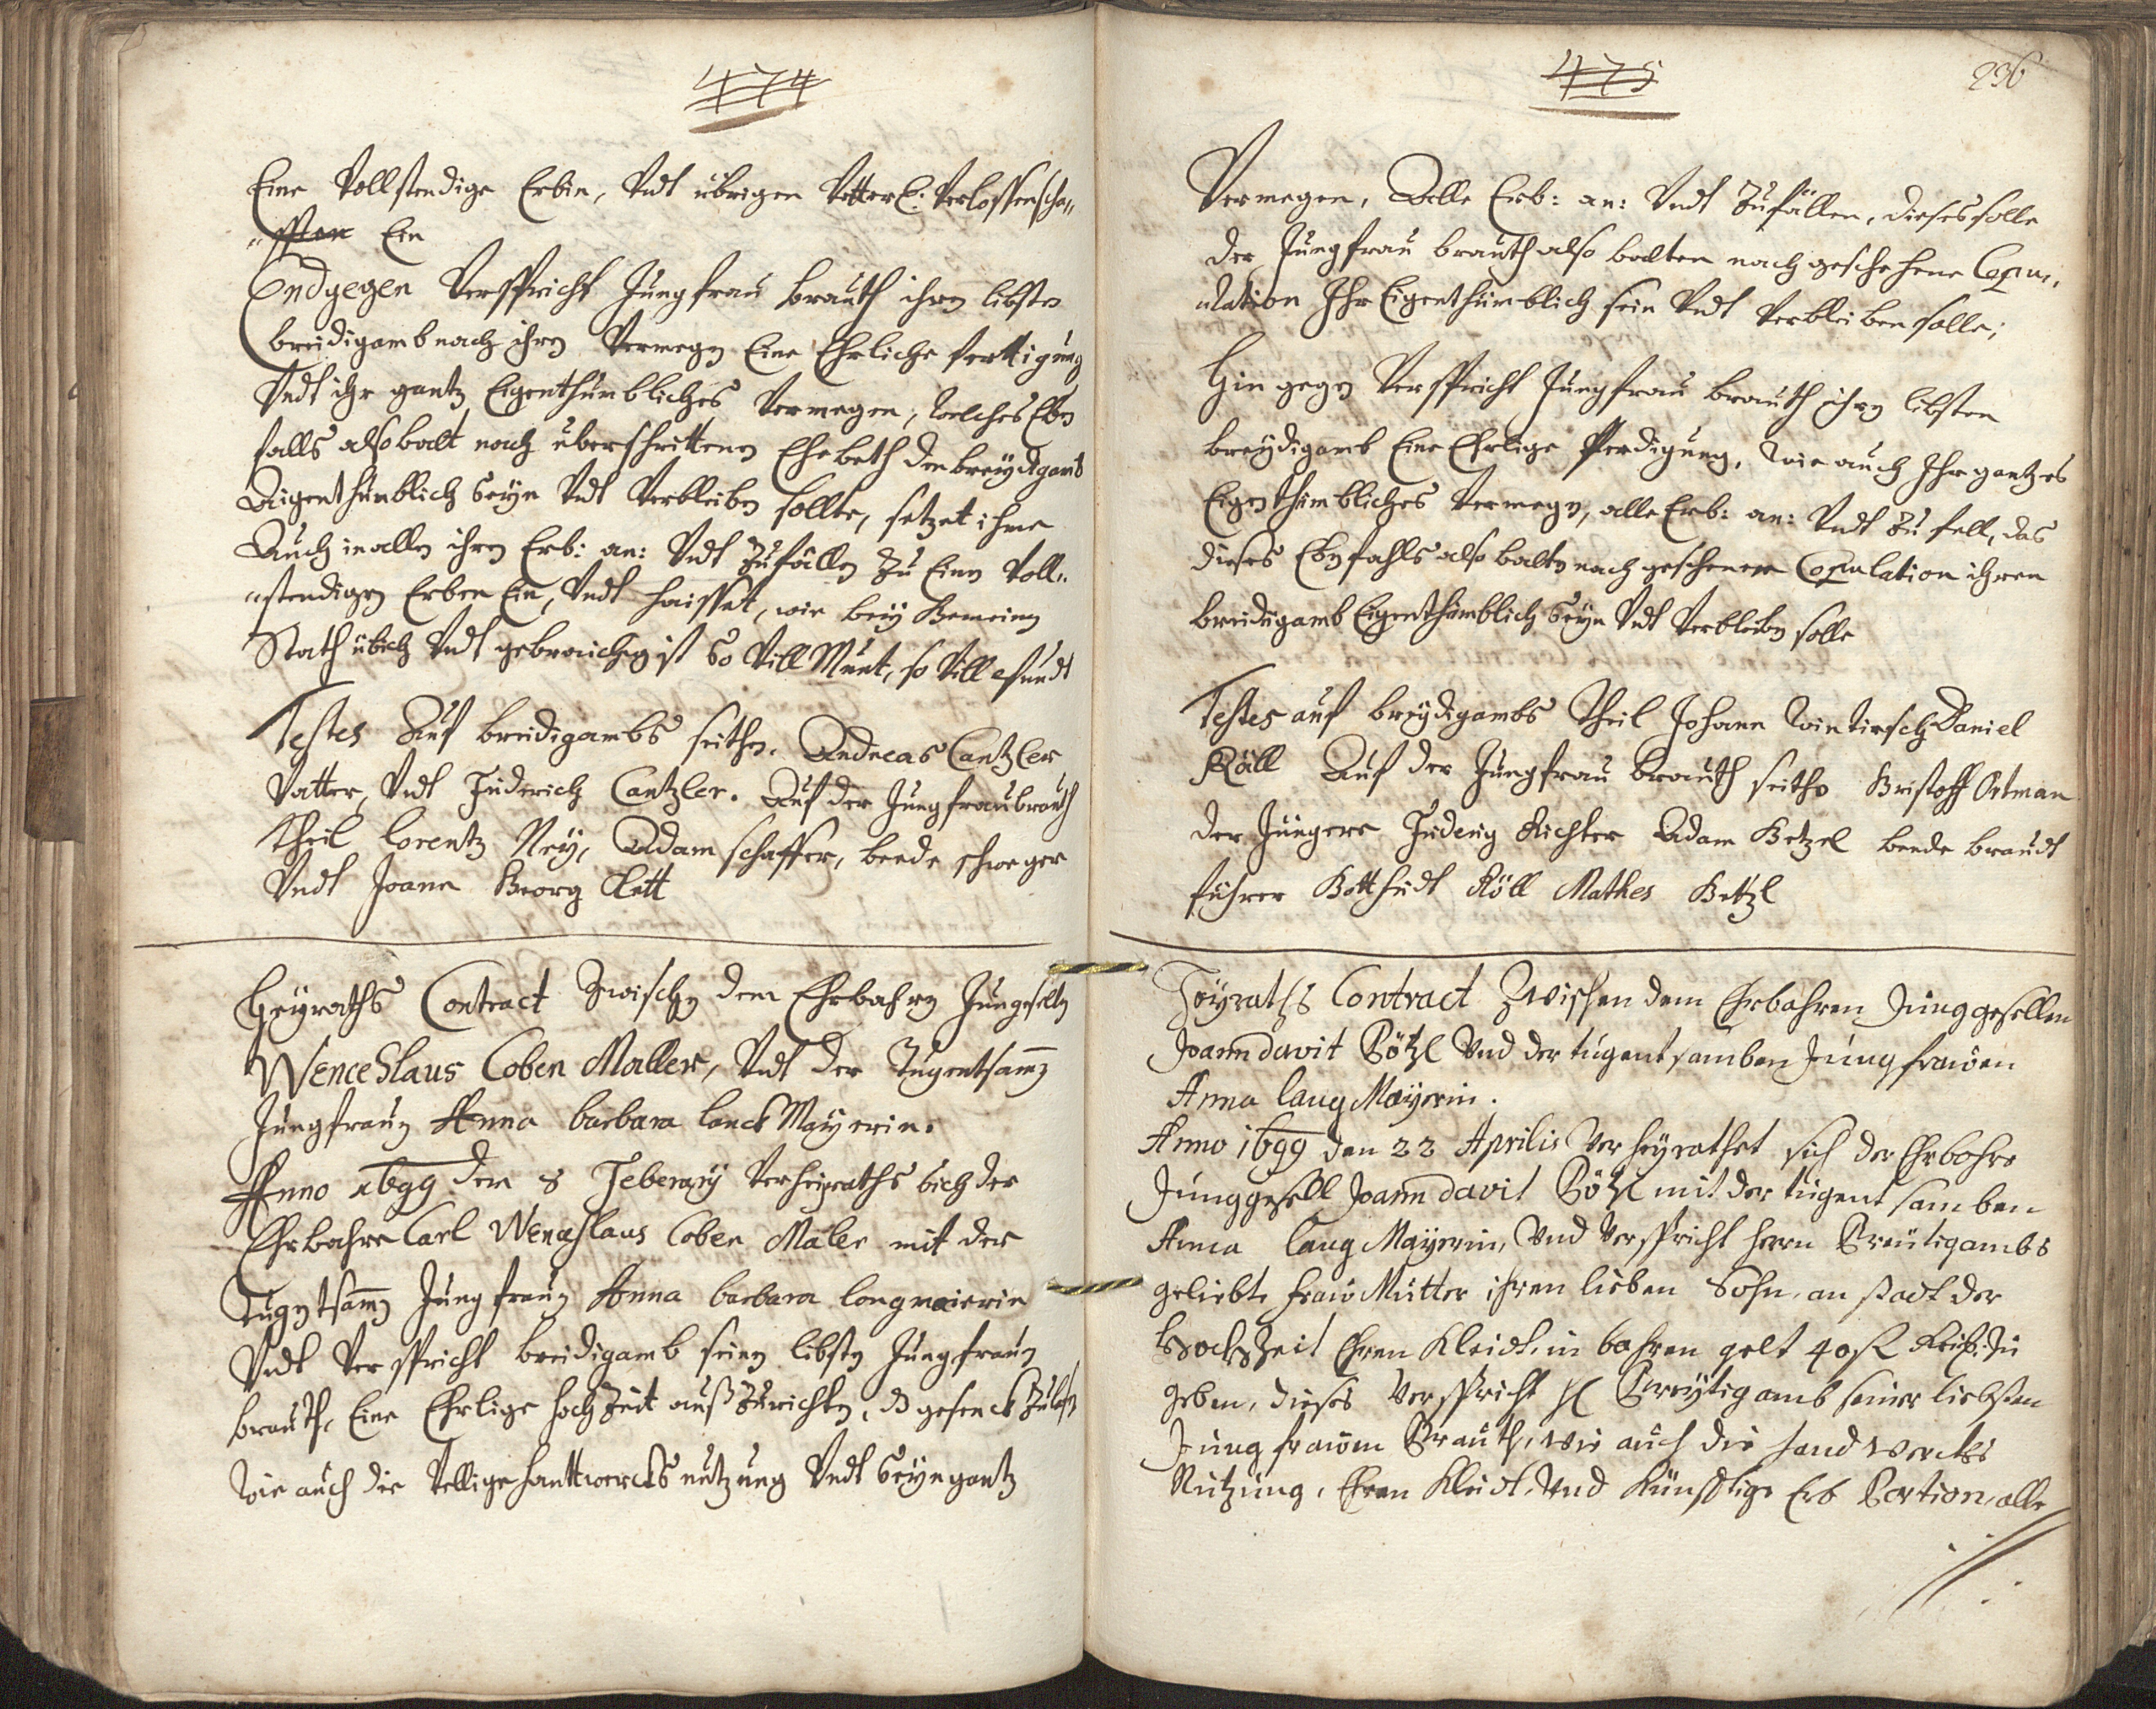 474
Eine Vollstendige Erbin, Vndt übrigen Vetterl: Verlossenscha„
„fften Ein
Endgegen Verspricht Jungfrau brauth ihren libsten
breidigamb nach ihren Vermegen Eine Ehrliche fertigung
Vndt ihr gantz Eigenthümbliches Vermegen, welches Eben
falls alsobalt nach überschrittenen Ehebeth den breydigamb
Aigenthümblich seyn Vndt Verbleiben sollte, setzet ihme
Auch in allen ihren Erb: an: Vndt Zufällen Zu Einen Voll„
„stendigen Erben Ein, Vndt haisset, wie bey Gemeiner
Stath üblich Vndt gebrauchig ist So Vill Munt, so Vill Pfundt
Testes Auf breidigambs seithen. Andreas Cantzler
Vatter, Vndt Friderich Cantzler. Auf der Jungfrau brauth
theil lorentz Ney, Adam schaffer, beede schweger
Vndt Joann Georg Klett
Heyraths Contract Zwischen dem Ehrbahren Jungeselln
Wenceslaus Coben Maller, Vndt der Tugentsammen
Jungfrauen Anna barbara lanck Mayerin.
Anno 1699 den 8 Feberary Verheyraths sich der
Ehrbahre Carl Wenceslaus Coben Maler mit der
Tugentsammen Jungfrauen Anna barbara longmaierin
Vndt Verspricht breidigamb seinen libsten Jungfrauen
brauth, Eine Ehrlige hochzeit auß Zurichten, gesenck Zulassen
Wie auch die Vellige hanttwercks nutzung Vndt Seyn gantz
475
236
Vermegen, Alle Erb: an: Vndt Zufällen, dieses solle
der Jungfrau brauth also balten nach geschehene Copu„
ulation Ihr Eigenthümblich sein Vndt Verbleiben solle;
Hin gegen Verspricht Jungfrau brauth ihren libsten
breydigamb Eine Ehrlige Ferdigung, Wie auch Ihr gantzes
Eigenthümbliches Vermegen, alle Erb: an: Vndt Zu fell, das
dieses Ebenfahls also balten nach geschener Copulation ihren
breidigamb Eigenthümblich Seyn Vndt Verbleiben solle
Testes auf breydigambs theil Johann Wintirsch Daniel
Röll Auf der Jungfrau brauth seithe Kristoff Ortman
der Jüngere Richter Adam Betzel beede braudt
führer Gotthardt Röll Mathes Betzl
Heyraths Contract Zwischen dem Ehrbahren Junggesellen
Joann davit Götzl Vnd der tugentsamben Jungfrauen
Anna lang Mayerin.
Anno 1699 den 22 Aprilis Verheyrathet sich der Ehrbahre
Junggesell Joann davit Götzl mit der tugentsamben
Anna lang Mayerin, Vnd Verspricht herrn Breutigambs
geliebte frau Mutter ihren lieben Sohn, an stadt der
hochzeit Ehren Kleidt, in bahren gelt 40 fl Reich: Zu
geben, dieses Verspricht H Breytigamb seiner liebsten
Jungfrauen Brauth, wie auch die handwercks
Nutzung, Ehren Kleidt, Vnd Künfftige Erb Portion, alle